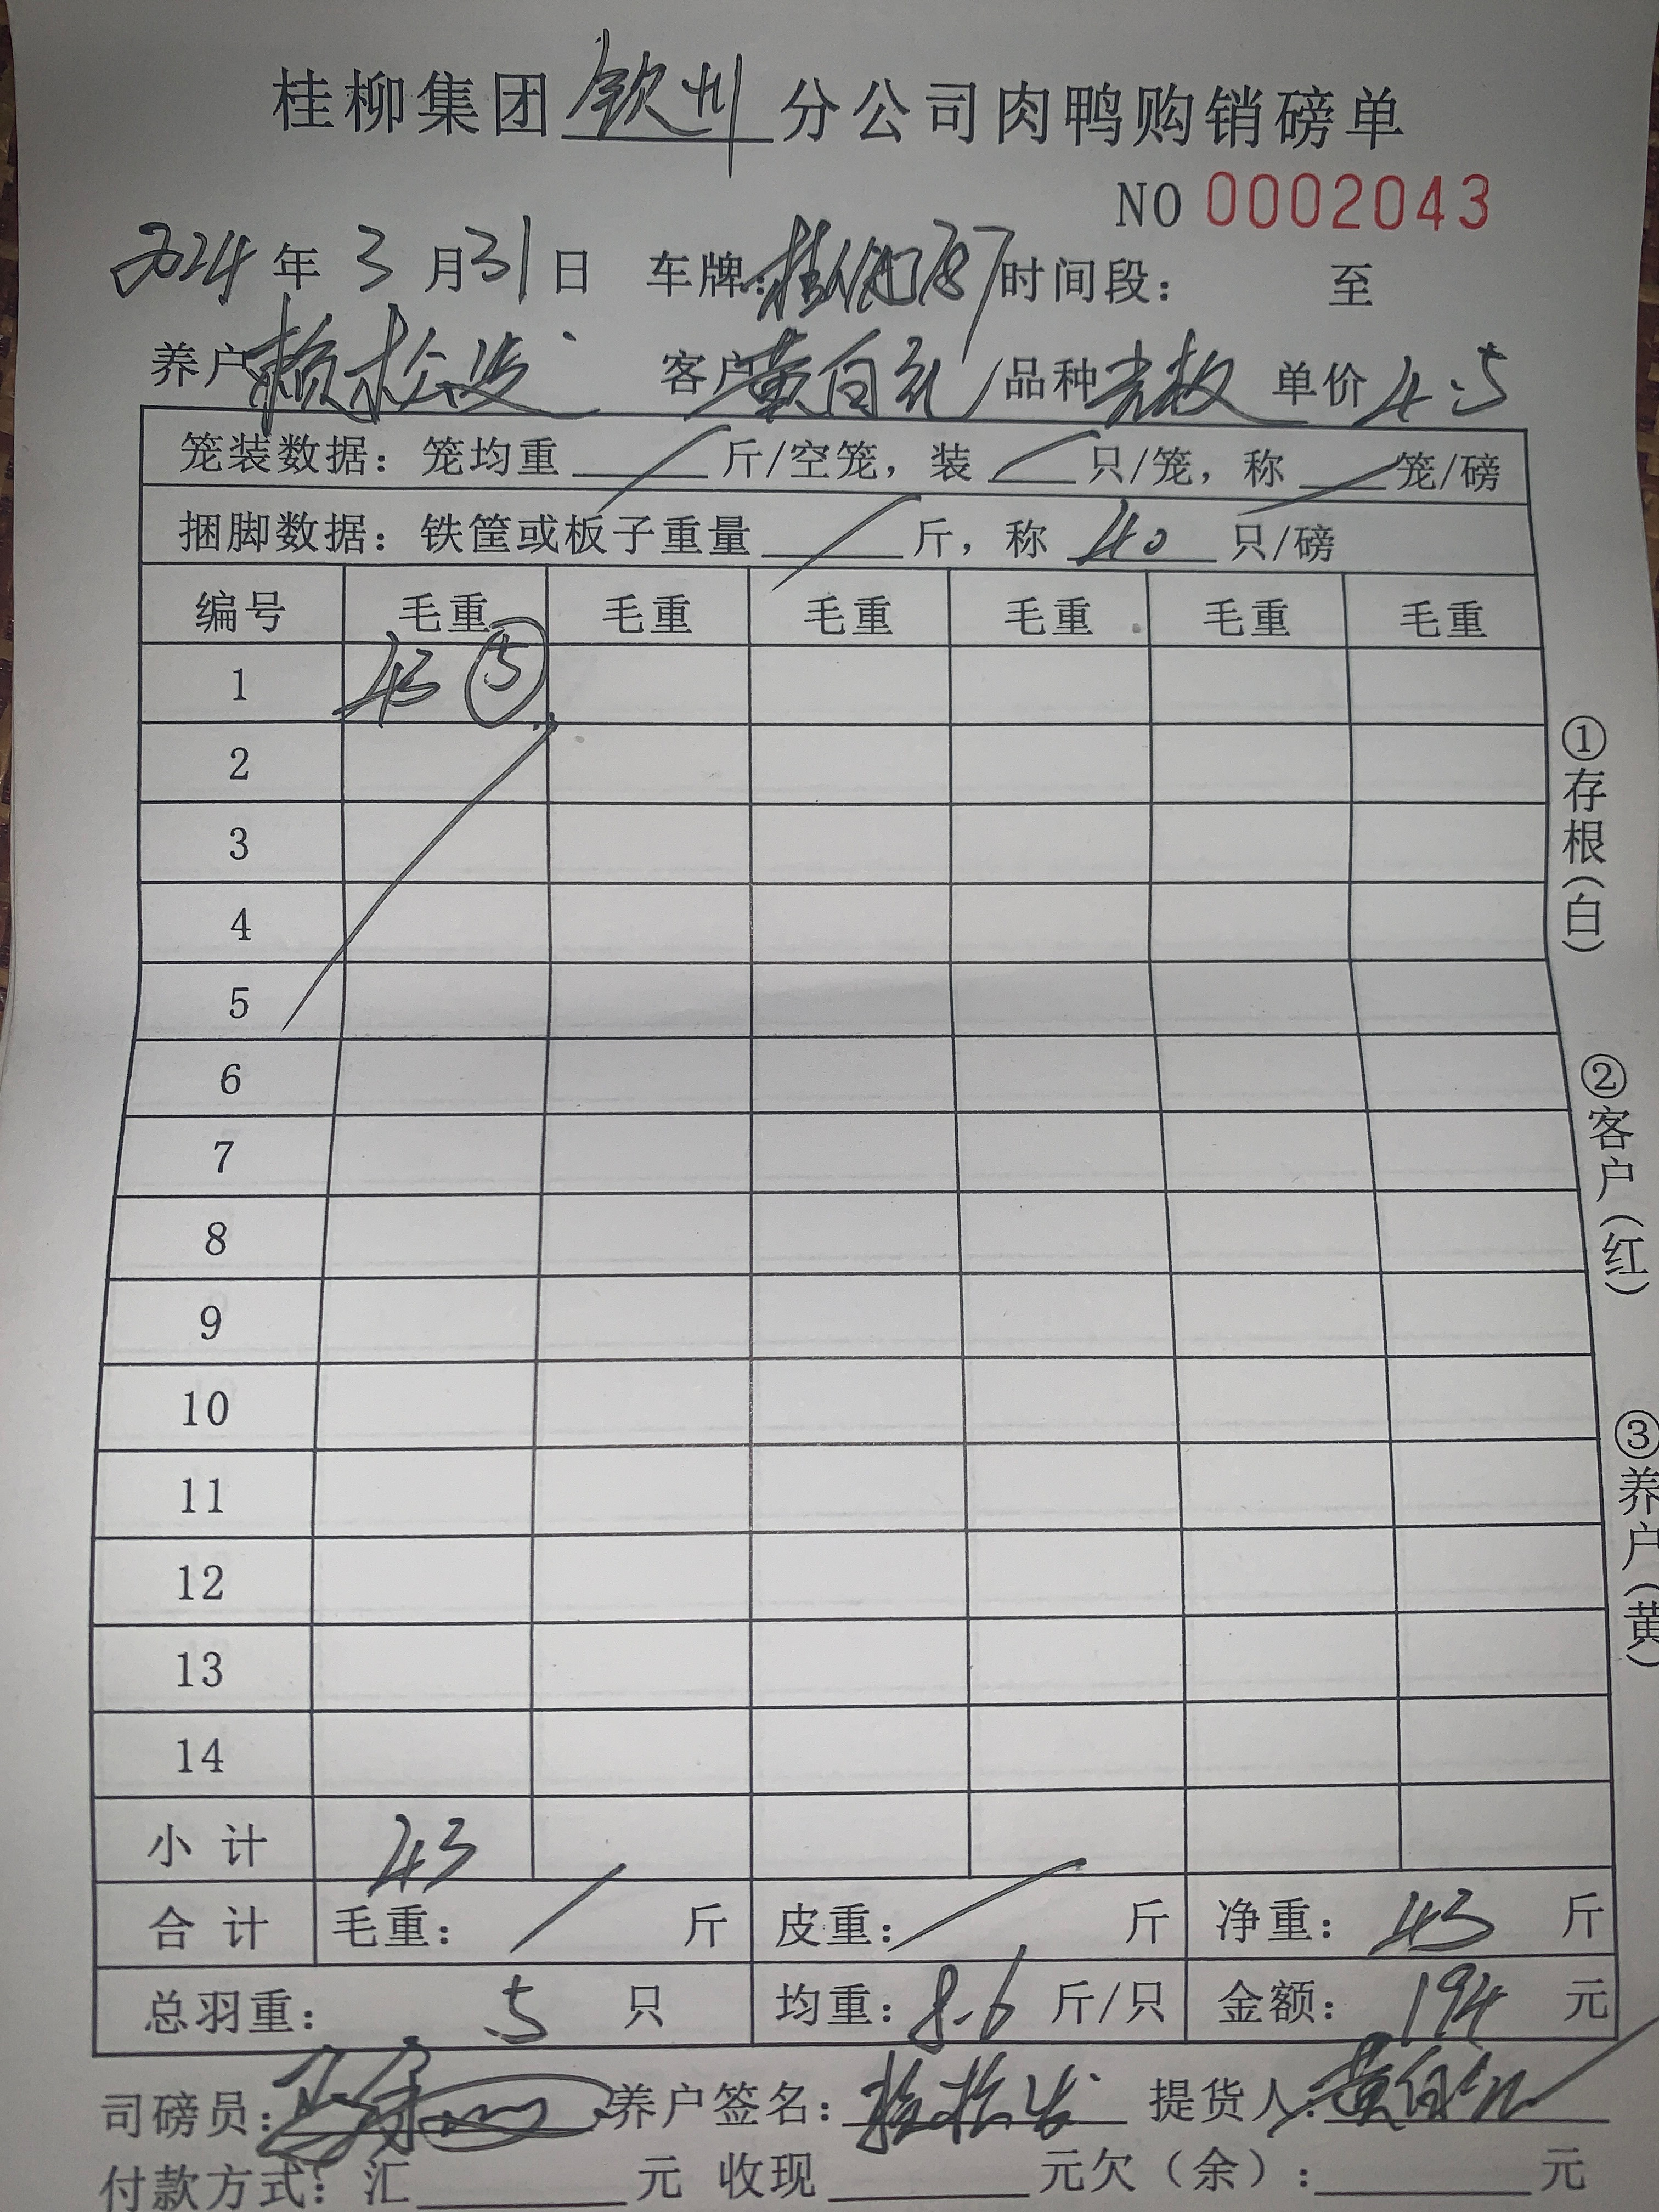 桂柳集团钦州分公司肉鸭购销磅单
NO 0002043
2024年3月31日 车牌：桂 787 时间段： 至
养户 赖松发 客户 黄自礼 品种 老板 单价 4.5
笼装数据：笼均重 斤/空笼，装 只/笼，称 笼/磅
捆脚数据：铁筐或板子重量 斤，称 40 只/磅
编号 毛重 毛重 毛重 毛重 毛重 毛重
1 43 ⑤
2
3
4
5
6
7
8
9
10
11
12
13
14
小计 43
合计 毛重： 斤 皮重： 斤 净重：43 斤
总羽重：5 只 均重：8.6 斤/只 金额：194 元
司磅员： 养户签名： 提货人：
付款方式：汇 元 收现 元欠（余）： 元
①存根（白）
②客户（红）
③养户（黄）